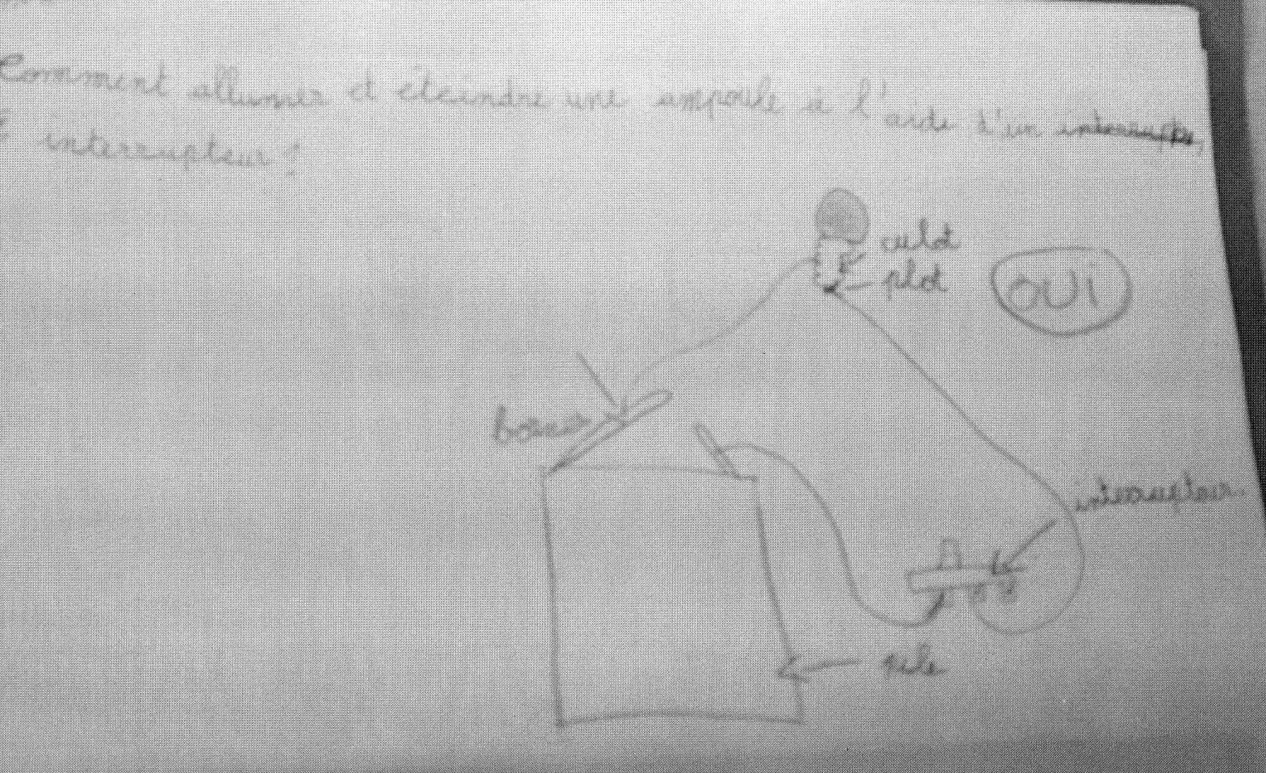 Comment allumer et éteindre une ampoule à l'aide d'un interrupte
interrupteur ?
culot
plot
OUi
bornes
interrupteur
pile